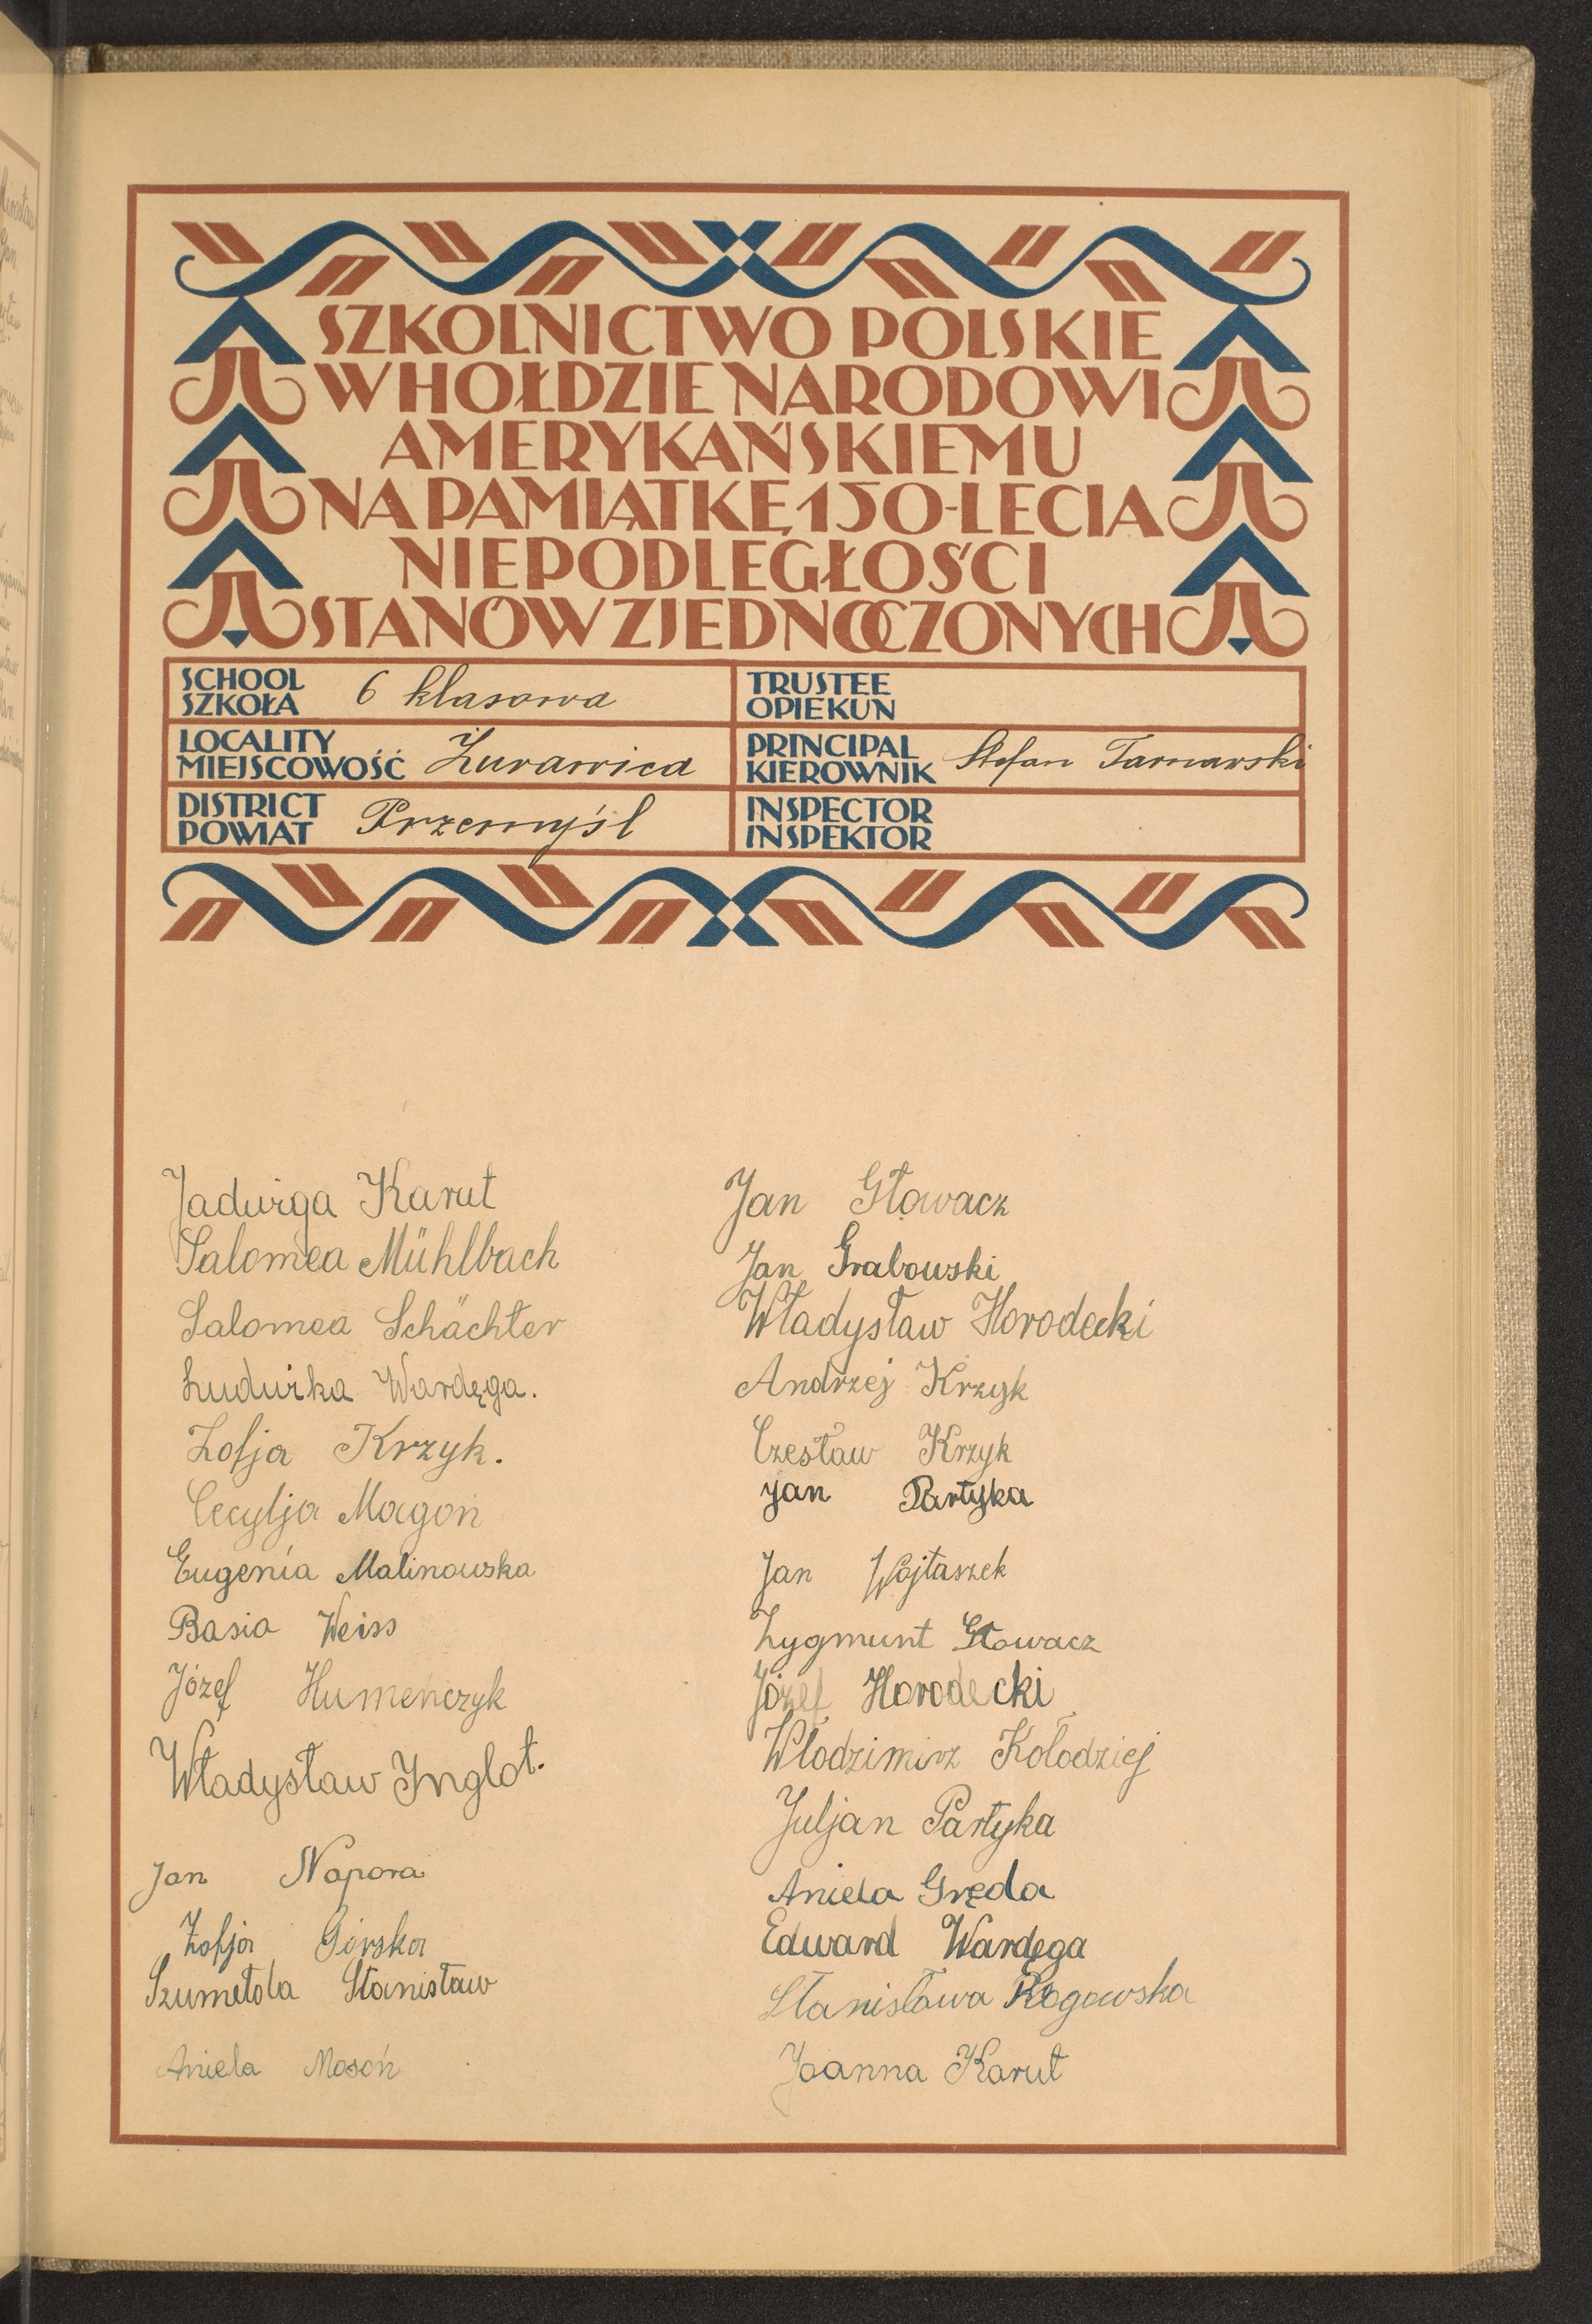 SZKOLNICTWO POLSKIE
W HOŁDZIE NARODOWI
AMERYKAŃSKIEMU
NA PAMIĄTKĘ 150-LECIA
NIEPODLEGŁOŚCI
STANÓW ZJEDNOCZONYCH
SCHOOL
SZKOŁA 6 klasowa
TRUSTEE
OPIEKUN
LOCALITY
MIEJSCOWOŚĆ Żurawica
PRINCIPAL
KIEROWNIK Stefan Tarnawski
DISTRICT
POWIAT Przemyśl
INSPECTOR
INSPEKTOR
Jadwiga Karut
Salomea Mühlbach
Salomea Schächter
Ludwika Wardęga.
Zofja Krzyk.
Cecylja Magoń
Eugenia Malinowska
Basia Weiss
Józef Humeńczyk
Władysław Inglot.
Jan Napora
Zofja Górska
Szumełda Stanisław
Aniela Mosoń
Jan Głowacz
Jan Grabowski
Władysław Horodecki
Andrzej Krzyk
Czesław Krzyk
Jan Partyka
Jan Wojtaszek
Zygmunt Głowacz
Józef Horodecki
Włodzimirz Kołodziej
Juljan Partyka
Aniela Gręda
Edward Wardęga
Stanisława Rogowska
Joanna Karut